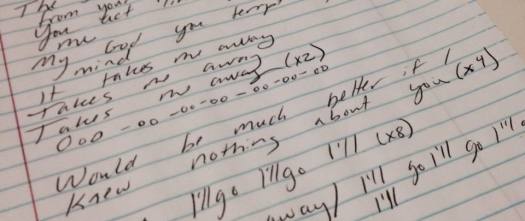 The
from your
You let
me
My God you tempt
my mind
It takes me away
Takes me away
Takes me away (x2)
Ooo -oo -oo-oo -oo-oo-oo
Would be much better if I
knew nothing about you (x4)
I'll go I'll go I'll (x8)
away) I'll go I'll go I'll
I'll